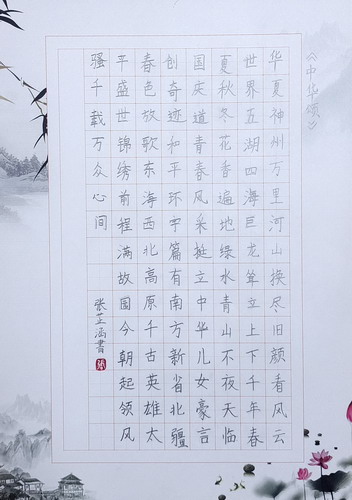 《中华颂》
华夏神州万里河山换尽旧颜看风云
世界五湖四海巨龙耸立上下千年春
夏秋冬花香遍地绿水青山不夜天临
国庆道青春风采挺立中华儿女豪言
创奇迹和平环宇篇有南方新省北疆
春色放歌东海西北高原千古英雄太
平盛世锦绣前程满故国今朝起领风
骚千载万众心间
张芷涵书